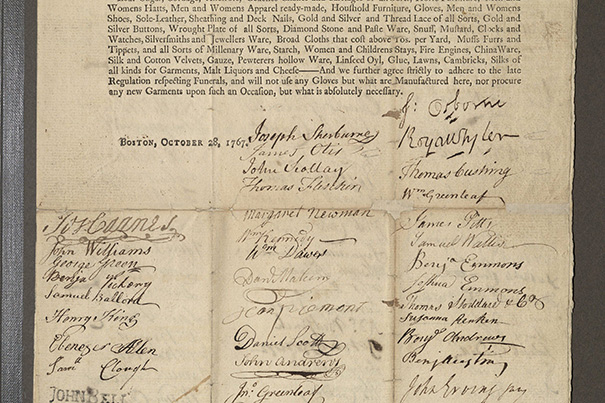 Womens Hatts, Men and Womens Apparel ready-made, Houshold Furniture, Gloves, Men and Womens
Shoes, Sole-Leather, Sheathing and Deck Nails, Gold and Silver and Thread Lace of all Sorts, Gold and
Silver Buttons, Wrought Plate of all Sorts, Diamond Stone and Paste Ware, Snuff, Mustard, Clocks and
Watches, Silversmiths and Jewellers Ware, Broad Cloths that cost above 10s. per Yard, Muffs Furrs and
Tippets, and all Sorts of Millenary Ware, Starch, Women and Childrens Stays, Fire Engines, China Ware,
Silk and Cotton Velvets, Gauze, Pewterers hollow Ware, Linseed Oyl, Glue, Lawns, Cambricks, Silks of
all kinds for Garments, Malt Liquors and Cheese—And we further agree strictly to adhere to the late
Regulation respecting Funerals, and will not use any Gloves but what are Manufactured here, nor procure
any new Garments upon such an Occasion, but what is absolutely necessary.
Boston, October 28, 1767.
John Williams
George Green
Benja Vickery
Samuel Ballord
Henry King
Ebenezr Allen
Saml Clough
JOHN BELL
Joseph Sherburne
James Otis
John Scollay
Thomas
Margaret Newman
Wm Kennedy
Wm Dawes
Danl Malcom
Daniel Scott
John Andrews
Jno. Greenleaf
J: Osborne
Royall Tyler
Thomas Cushing
Wm Greenleaf
James Pitts
Samuel Wallis
Benja Emmons
Joshua Emmons
Thomas Stoddard & Co
Susanna Renken
Benj Andrews
John Erving jun